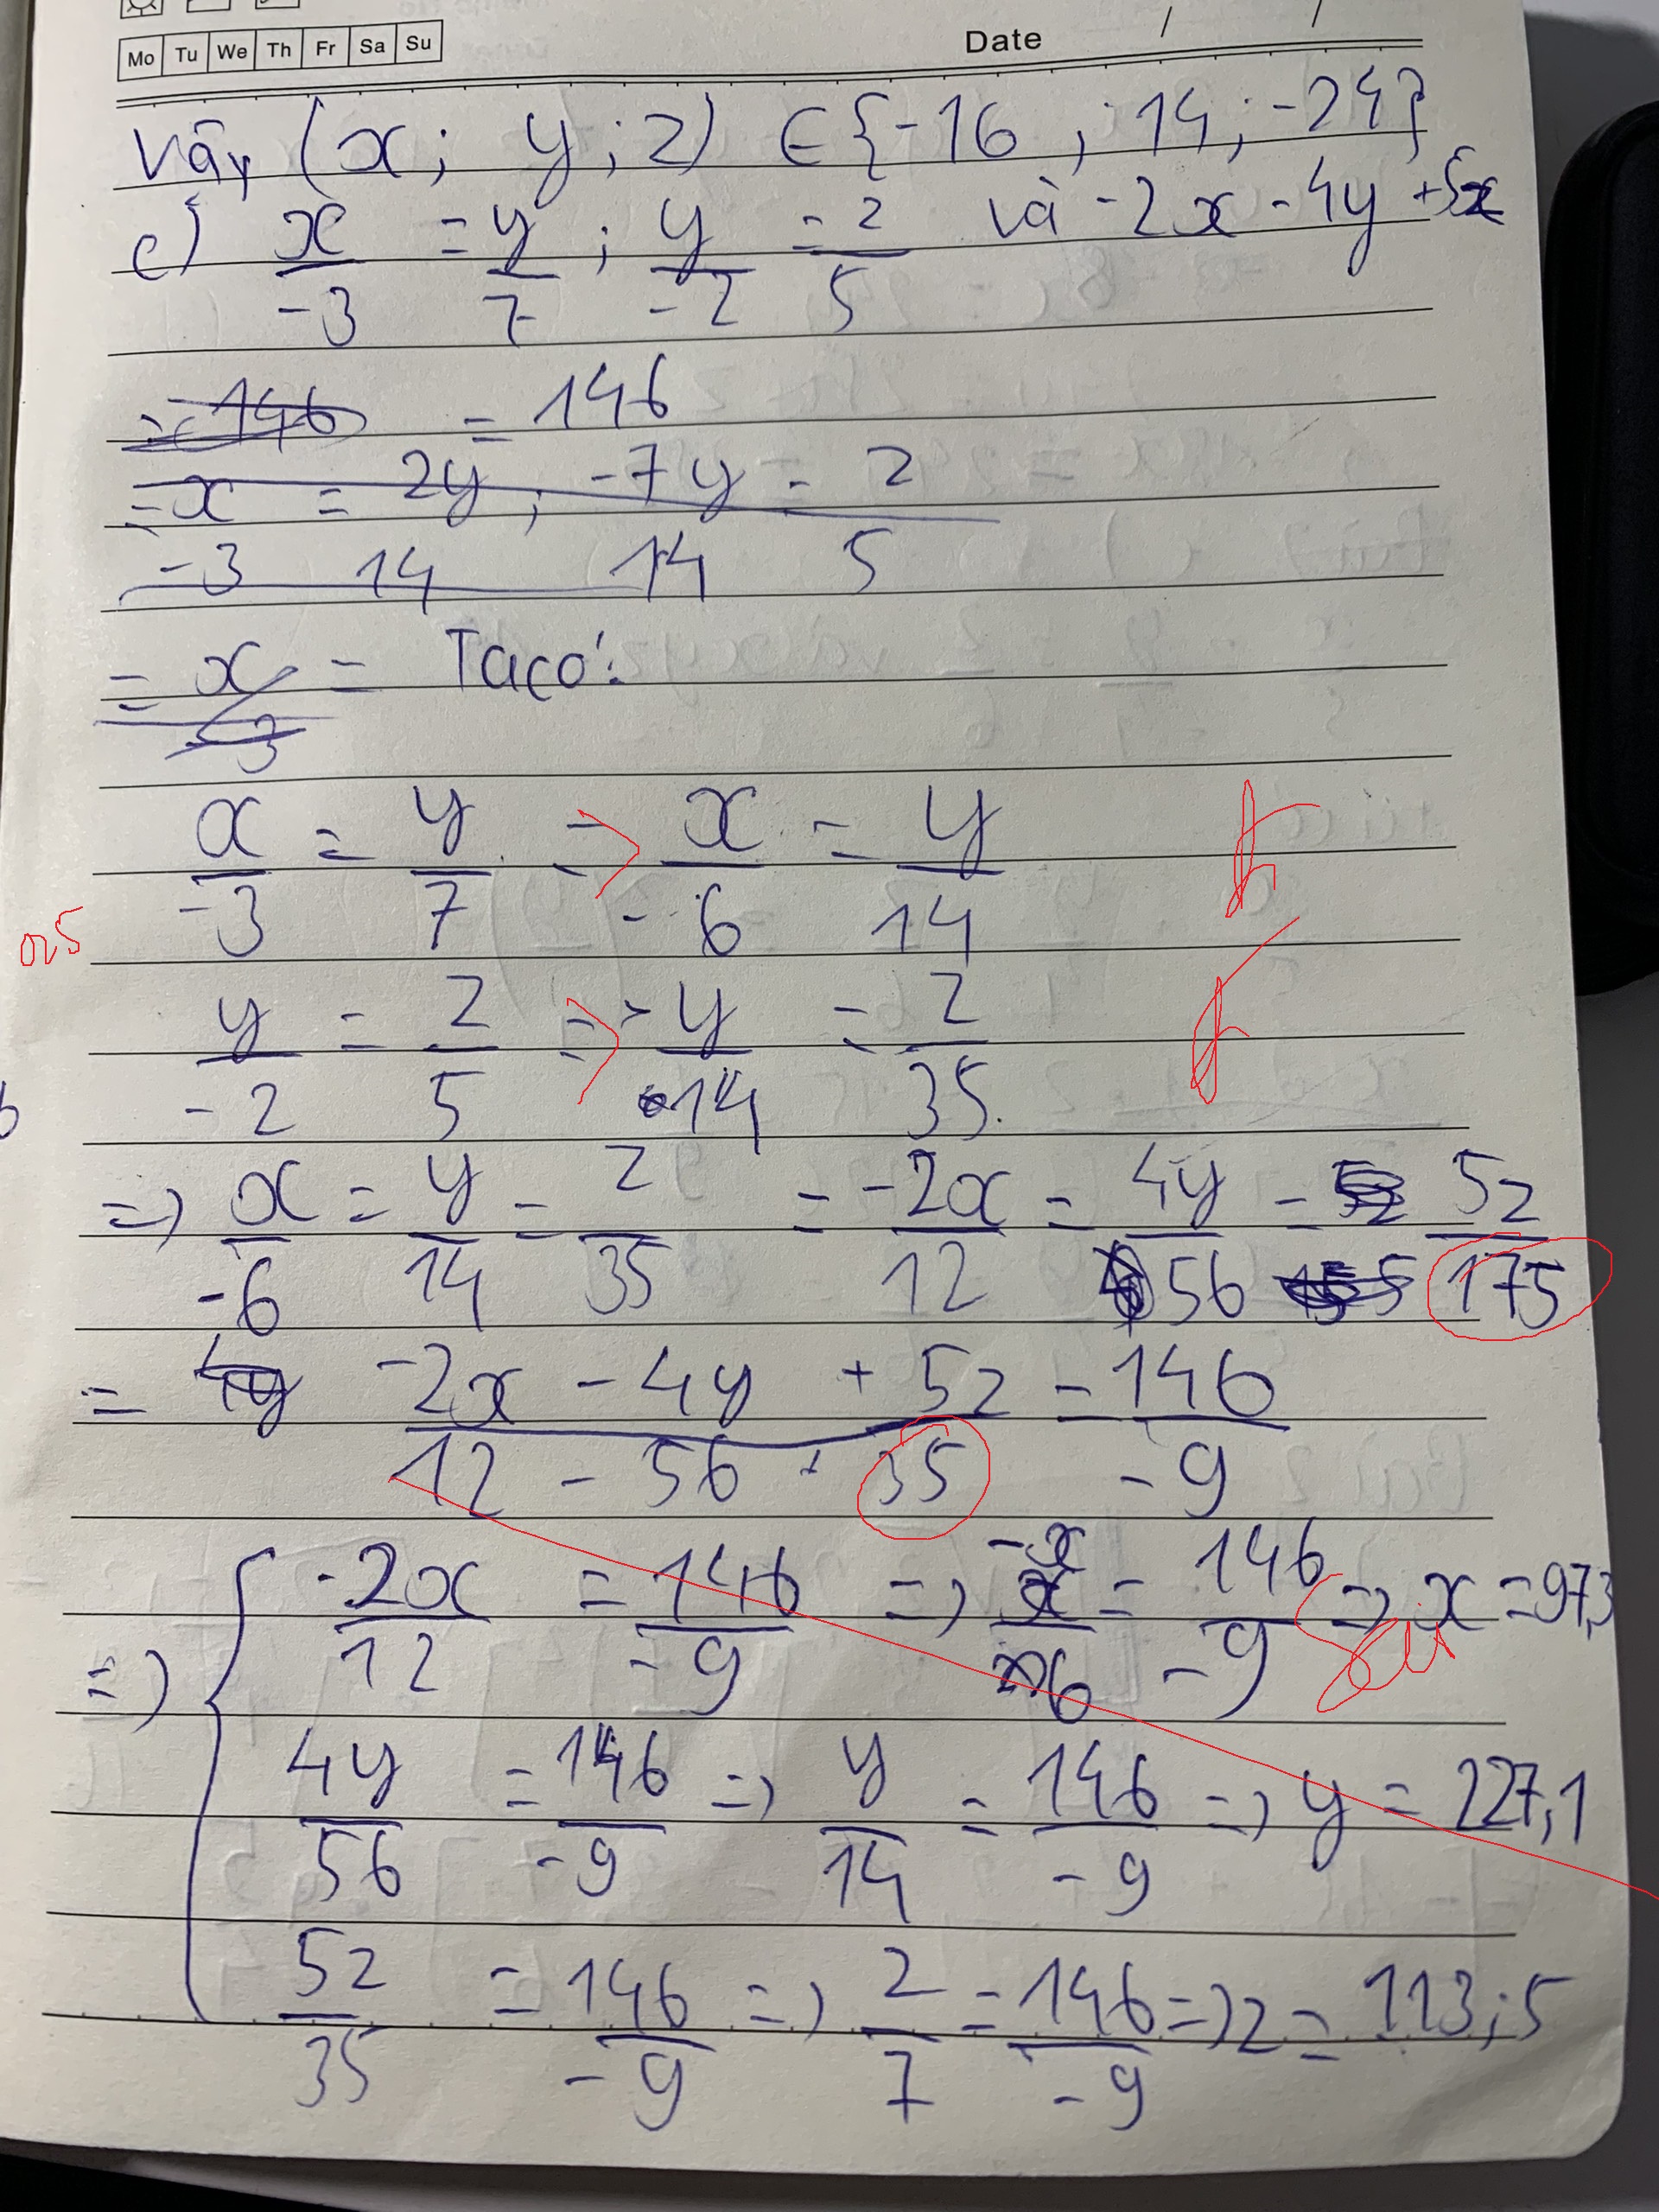 Mo Tu We Th Fr Sa Su
Date / /
Vậy (x; y; z) ∈ {-16; 14; -24}
c) x/-3 = y/7; y/-2 = z/5 và -2x - 4y + 5z
= 146 = 146
= x/-3 = 2y/14; -7y/14 = z/5
= x/3 = Ta có:
x/-3 = y/7 => x/-6 = y/14
025
y/-2 = z/5 => y/-14 = z/35
=> x/-6 = y/14 = z/35 = -2x/12 = 4y/56 = 5z/175
= 4y (-2x - 4y + 5z)/(12 - 56 + 35) = 146/-9
=> { -2x/12 = 146/-9 => -x/6 = 146/-9 => x = 97,3
Sai
4y/56 = 146/-9 => y/14 = 146/-9 => y = 227,1
5z/35 = 146/-9 => z/7 = 146/-9 => z = 113,5